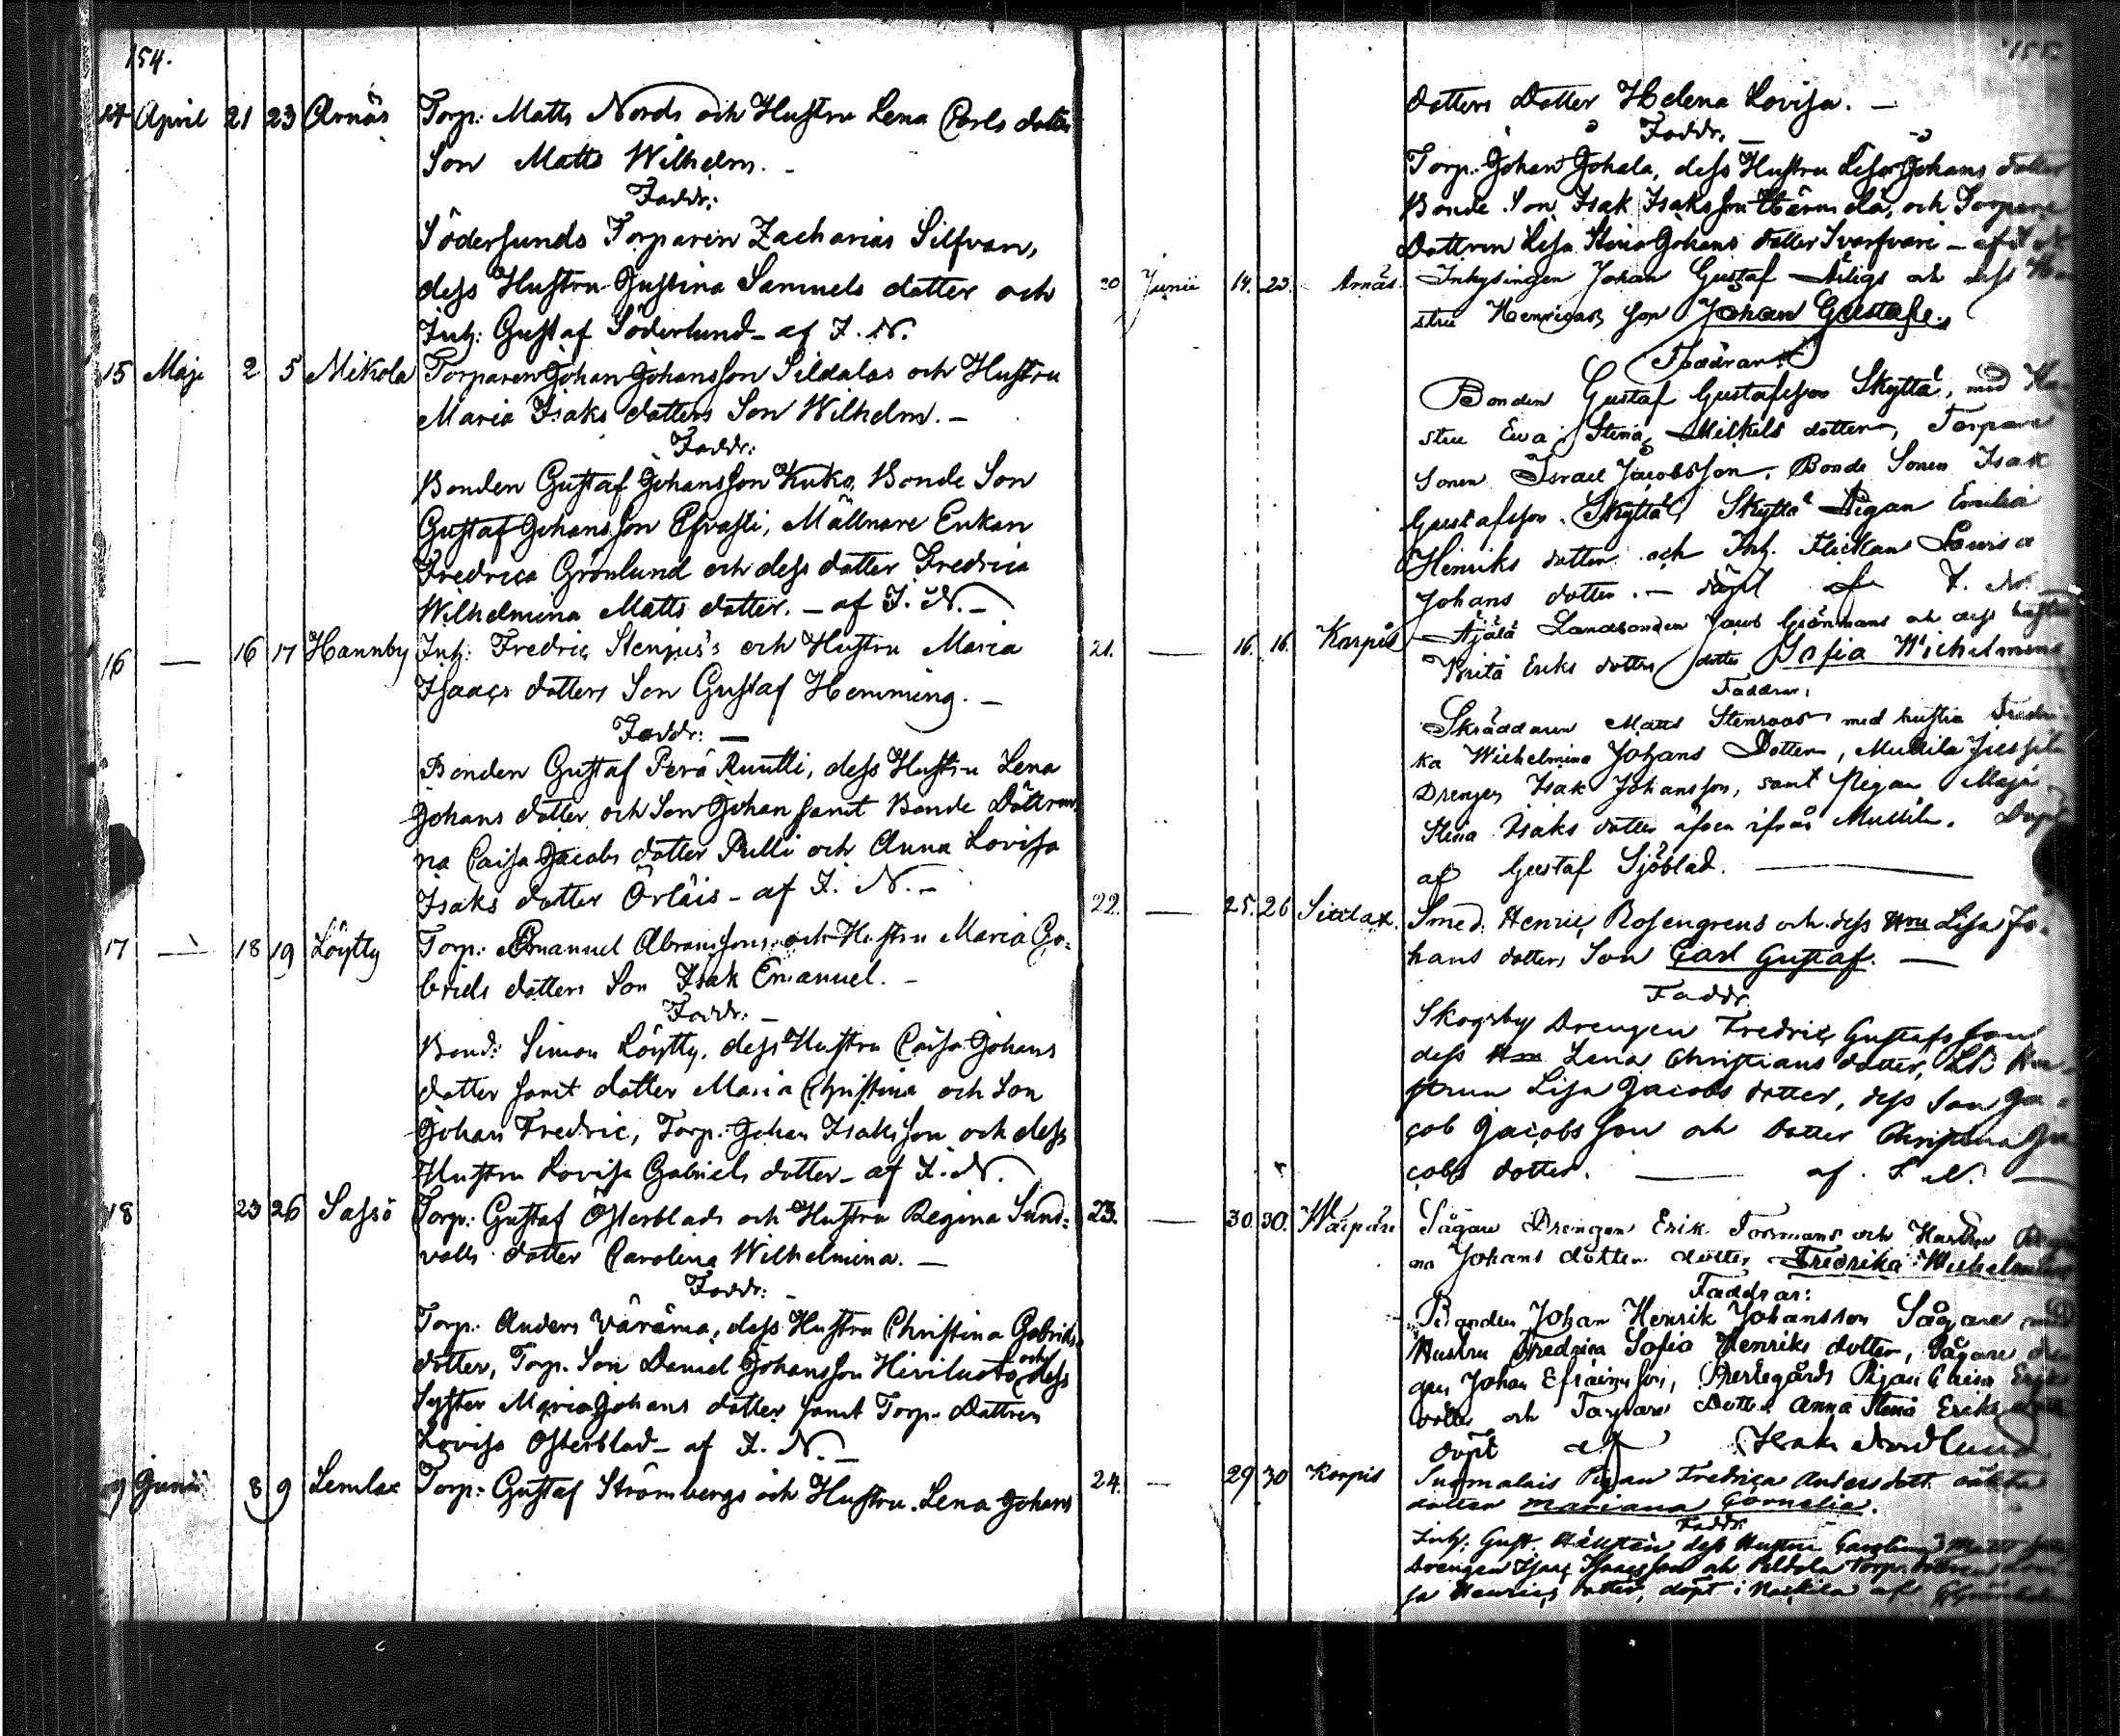 154.
14 April 21 23 Arnäs Torp: Matts Nords och Hustru Lena Carls dotters
Son Matts Wilhelm. -
Faddr:
Södersunds Torparen Zacharias Silfvan,
dess Hustru Justina Samuels dotter och
Inh: Gustaf Söderlund - af I. N.
15 Maji 2 5 Mikola Torparen Johan Johansson Sildalas och Hustru
Maria Isaks dotters Son Wilhelm. -
Faddr:
Bonden Gustaf Johansson Kuko, Bonde Son
Gustaf Johansson, Mällnare Enkan
Fredrica Grönlund och dess dotter Fredrica
Wilhelmina Matts dotter. - af I. N. -
16 — 16 17 Hannby Inh: Fredric Stenjus's och Hustru Maria
Isaacs dotters Son Gustaf Hemming. -
Faddr: -
Bonden Gustaf Perä Runtti, dess Hustru Lena
Johans dotter och Son Johan samt Bonde Döttrar
na Caisa Jacobs dotter Pulli och Anna Lovisa
Isaks dotter Örläis - af I. N. -
17 — 18 19 Löytty Torp: Emanuel Abramssons och Hustru Maria Ga=
briels dotters Son Isak Emanuel. -
Faddr: -
Bond: Simon Löytty, dess Hustru Caisa Johans
dotter samt dotter Maria Christina och Son
Johan Fredric, Torp: Johan Isaksson och dess
Hustru Lovisa Gabriels dotter - af I. N.
18 23 26 Sassö Torp: Gustaf Österblads och Hustru Regina Sund=
valls dotter Carolina Wilhelmina. -
Faddr: -
Torp: Anders Värämä, dess Hustru Christina Gabriels
dotter, Torp. Son Daniel Johansson Hiriluoto och dess
Syster Maria Johans dotter samt Torp. Dottren
Lovisa Österblad - af I. N. -
19 Junii 8 9 Lemlax Torp: Gustaf Strömbergs och Hustru Lena Johans
155.
dotters Dotter Helena Lovisa. -
Faddr. -
Torp: Johan Johala, dess Hustru Lisa Johans dotter
Bonde Son Isak Isaksson Härmälä, och Torpare
Dottren Lisa Stina Johans dotter - af
20 Junii 14. 23. Arnäs. Inhysingen Johan Gustaf och dess Hu
stru Henricas son Johan Gustaf.
Faddrar:
Bonden Gustaf Gustafsson Skyttä, med Hu
stru Eva Stina Mickels dotter, Torpare
Sonen Israel Jacobsson, Bonde Sonen Isak
Gustafsson Skyttä, Skyttä Pigan Emilia
Henriks dotter och Inh. Flickan Lovisa
Johans dotter. - döpt af I. N.
21. — 16. 16. Karpis Äjälä Landbonden Jacob Grönmans och dess hustru
Brita Eriks dotters dotter Sofia Wilhelmina
Faddrar:
Skräddaren Matts Stenroos med hustru Fredri
ka Wilhelmina Johans Dotter, Mullila
Drengen Isak Johansson, samt Pigan Maja
Stina Isaks dotter äfven ifrån Mullila. Döpt
af Gustaf Sjöblad. —
22. — 25. 26 Sittlax. Smed. Henric Rosengrens och dess Hru Lisa Jo-
hans dotters Son Carl Gustaf. —
Faddr.
Skogsby Drengen Fredric Gustafsson
dess Hru Lena Christians dotter, LB Hu-
strun Lisa Jacobs dotter, dess Son Ja-
cob Jacobsson och Dotter Christina Ja
cobs dotter. — af. I. N. —
23. — 30. 30. Wäipäri Sågare Drengen Erik Forsmans och Hustru
na Johans dotters dotter Fredrika Wilhelmina
Faddrar:
Bonden Johan Henrik Johansson Sågare med
Hustru Fredrica Sofia Henriks dotter, Sågare dren
gen Johan Efraimsson, Prestegårds Pigan Caisa Eriks
dotter och Torpare Dottren Anna Stina Eriks dotter
döpt af Isak Nordlund
24. — 29 30 Karpis Suomalais Pigan Fredrica Anders dott. oäkta
dotter Mariana Cornelia.
Faddr.
Inh: Gust. Hällsten dess Hustru Carolina Matts
Drengen Isaac Isaacsson och Torp: dottren Lovi
sa Henrics dotter, döpt i af